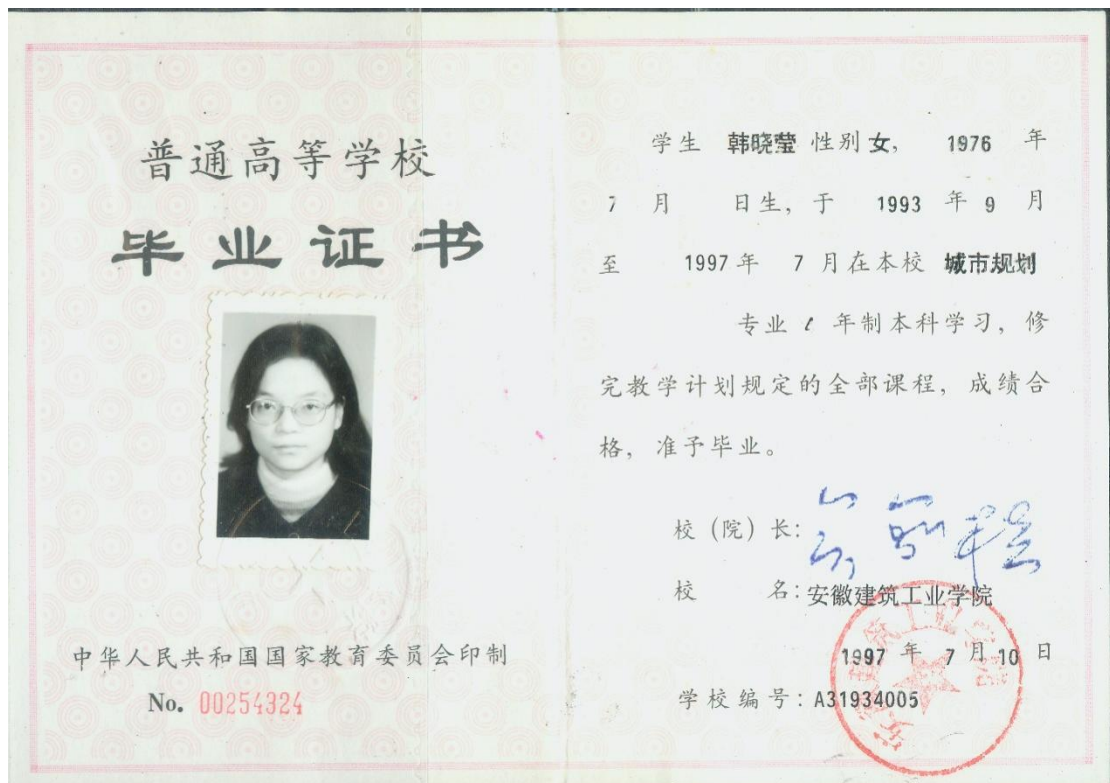 普通高等学校
毕业证书
中华人民共和国国家教育委员会印制
No. 00254324
学生 韩晓莹 性别 女, 1976 年
7 月 日生, 于 1993 年 9 月
至 1997 年 7 月在本校 城市规划
专业 年制本科学习, 修
完教学计划规定的全部课程, 成绩合
格, 准予毕业。
校 (院) 长:
校 名: 安徽建筑工业学院
1997 年 7 月 10 日
学校编号: A31934005